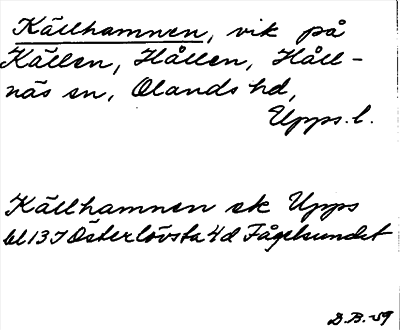 Källhamnen, vik på
Källen, Hållen, Håll-
näs sn, Olands hd,
Upps. l.
Källhamnen ek Upps
bl 13 I Österlövsta 4d Fågelsundet
D.B. -59